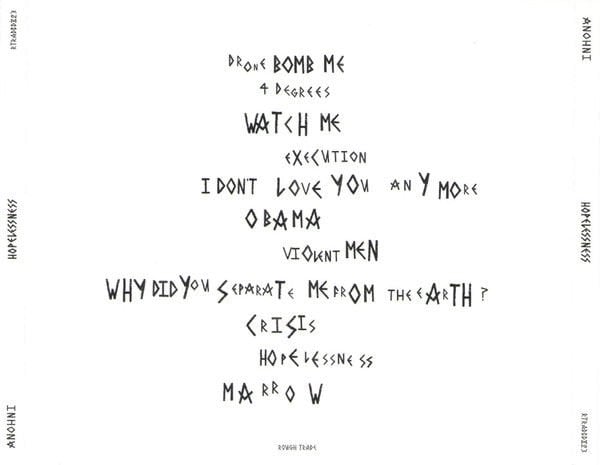 ANOHNI HOPELESSNESS
DRONE BOMB ME
4 DEGREES
WATCH ME
EXECUTION
I DON'T LOVE YOU ANYMORE
OBAMA
VIOLENT MEN
WHY DID YOU SEPARATE ME FROM THE EARTH?
CRISIS
HOPELESSNESS
MARROW
ROUGH TRADE
ANOHNI HOPELESSNESS